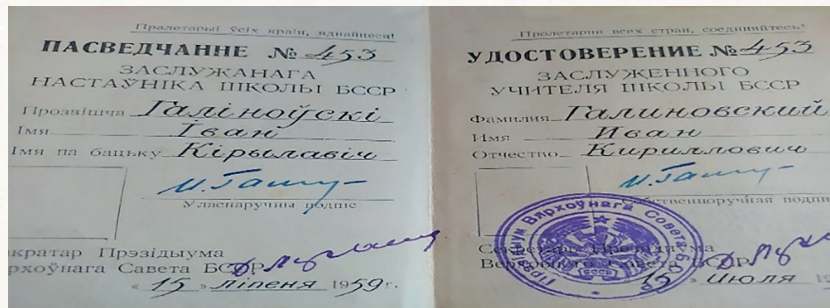 Пралетарыі ўсіх краін, яднайцеся!
ПАСВЕДЧАННЕ № 453
ЗАСЛУЖАНАГА
НАСТАЎНІКА ШКОЛЫ БССР
Прозвішча Галіноўскі
Імя Іван
Імя па бацьку Кірылавіч
Уласнаручны подпіс
кратар Прэзідыума
рхоўнага Савета БССР
« 15 » ліпеня 1959 г.
Пролетарии всех стран, соединяйтесь!
УДОСТОВЕРЕНИЕ № 453
ЗАСЛУЖЕННОГО
УЧИТЕЛЯ ШКОЛЫ БССР
Фамилия Галиновский
Имя Иван
Отчество Кириллович
бственноручная подпи
Секретарь Президиума
Верховного Совета БССР
15 июля 19
Прэзідыум Вярхоўнага Савета
БССР